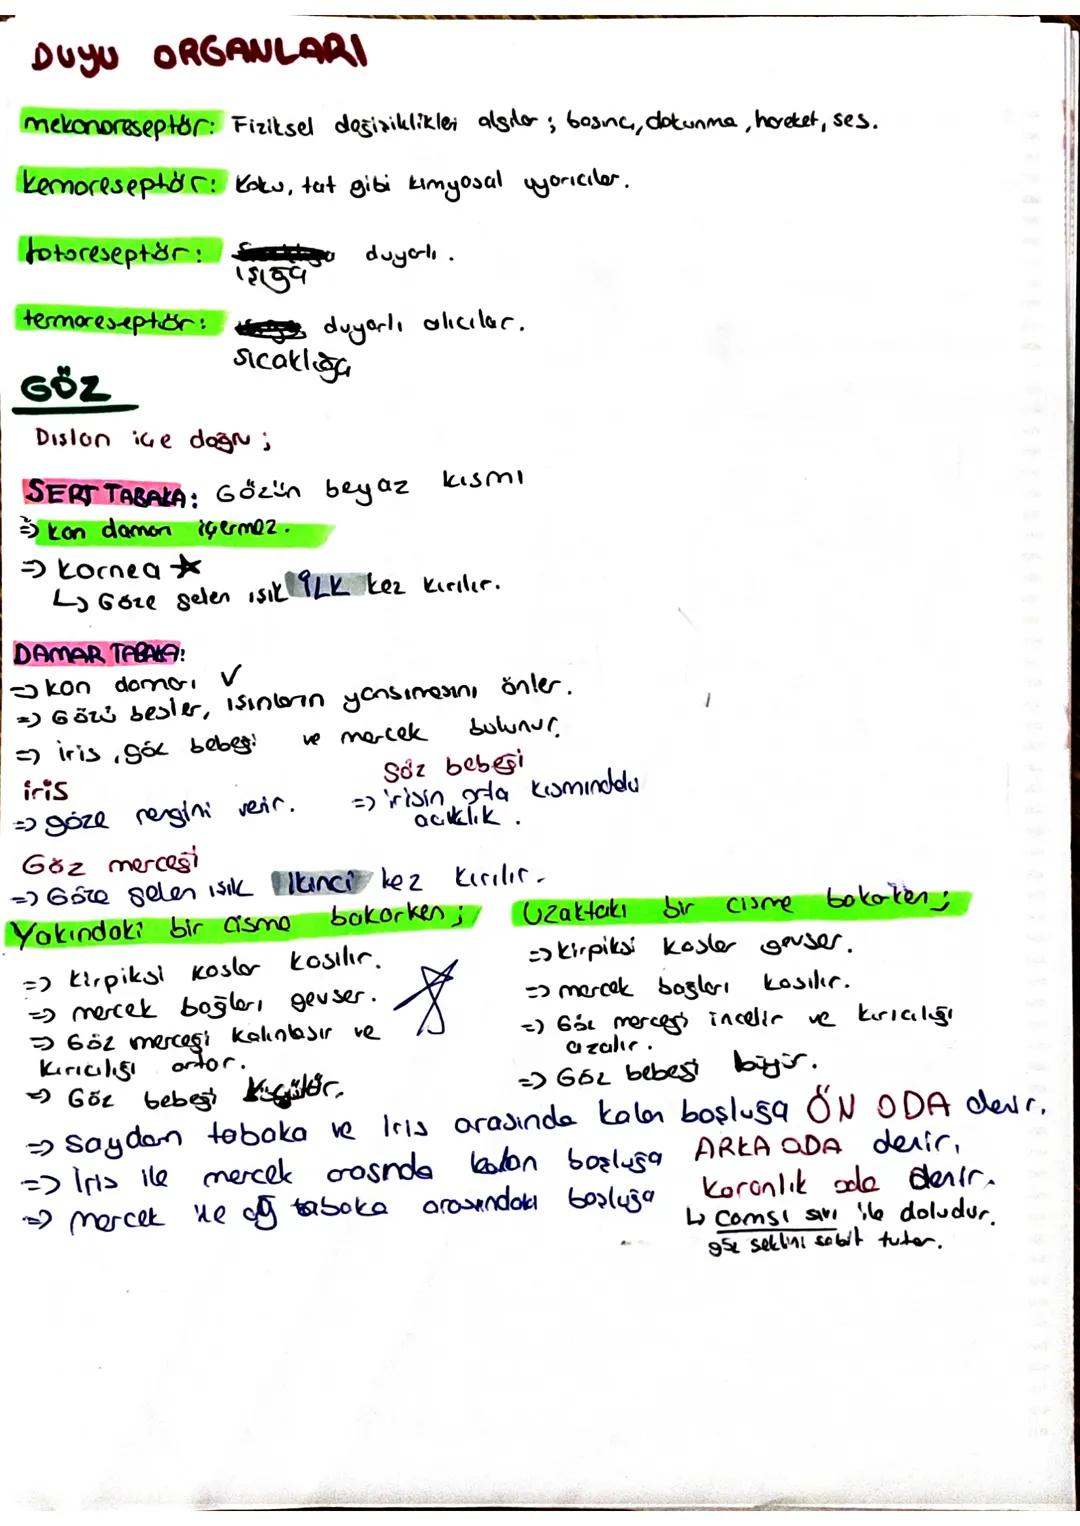 DUYU ORGANLARI
mekanoreseptör: Fiziksel değişiklikleri algılar ; basınç, dokunma, hareket, ses.
kemoreseptör: Koku, tat gibi kimyasal uyarıcılar.
fotoreseptör: duyarlı.
ışığa
termoreseptör: duyarlı alıcılar.
sıcaklığa
GÖZ
Dıştan içe doğru ;
SERT TABAKA: Gözün beyaz kısmı
⇒ kan damarı içermez.
⇒ kornea ☆
↳ Göze gelen ışık İLK kez kırılır.
DAMAR TABAKA:
⇒ kan damarı ✓
⇒ Gözü besler, ışınların yansımasını önler.
⇒ iris, göz bebeği ve mercek bulunur.
iris
⇒ göze rengini verir.
Göz bebeği
⇒ irisin orta kısmındaki
açıklık.
Göz merceği
⇒ Göze gelen ışık İkinci kez kırılır.
Yakındaki bir cisme bakarken ;
⇒ kirpiksi kaslar kasılır.
⇒ mercek bağları gevşer.
⇒ Göz merceği kalınlaşır ve
kırıcılığı artar.
⇒ Göz bebeği küçülür.
Uzaktaki bir cisme bakarken ;
⇒ kirpiksi kaslar gevşer.
⇒ mercek bağları kasılır.
⇒ Göz merceği incelir ve kırıcılığı
azalır.
⇒ Göz bebeği büyür.
⇒ saydam tabaka ve iris arasında kalan boşluğa ÖN ODA denir.
⇒ İris ile mercek arasında kalan boşluğa ARKA ODA denir.
⇒ mercek ile ağ tabaka arasındaki boşluğa karanlık oda denir.
↳ camsı sıvı ile doludur.
göz şeklini sabit tutar.